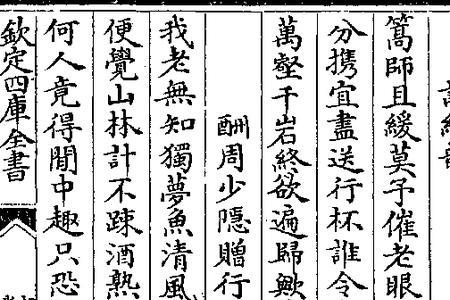 篙師且緩莫予催老眼
分携宜盡送行杯誰令
萬壑千岩終欲遍歸歟
酬周少隱贈行
我老無知獨夢魚清風
便覺山林計不踈酒熟
何人竟得閒中趣只恐
欽定四庫全書